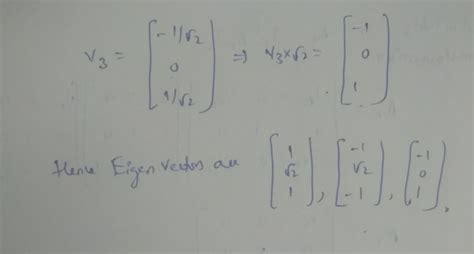 V₃ = [-1/√2 0 1/√2] ⇒ V₃×√2 = [-1 0 1]
Hence Eigen vectors are [1 √2 1], [-1 √2 -1], [-1 0 1].